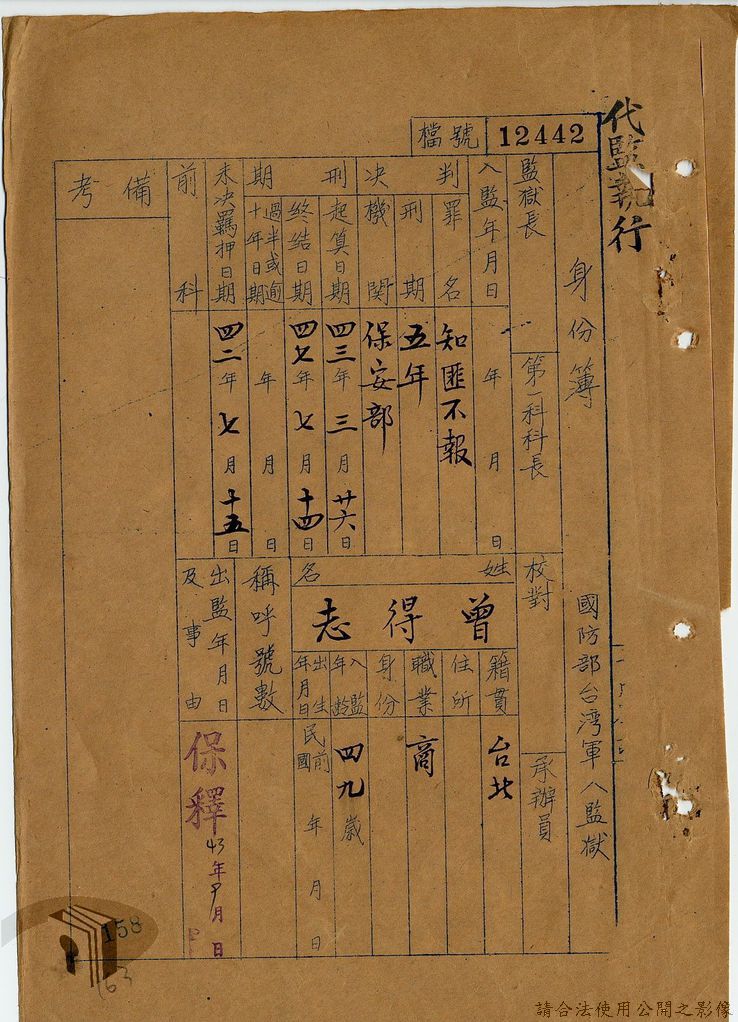 代監執行
檔號 12442
身份簿
國防部台湾軍人監獄
監獄長
第一科科長
校對
承辦員
入監年月日 年 月 日
判決
罪名 知匪不報
刑期 五年
機関 保安部
刑期
起算日期 四三年 三月 廿六日
終结日期 四七年 七月 十四日
過半或逾十年日期 年 月 日
未决羈押日期 四二年 七月 十五日
前科
備考
姓名
曾得志
籍貫 台北
住所
職業 商
身份
入監年龄 四九歲
出生年月日 民國前 年 月 日
稱呼號數
出監年月日及事由
保釋
43年 月 日
158
63
請合法使用公開之影像